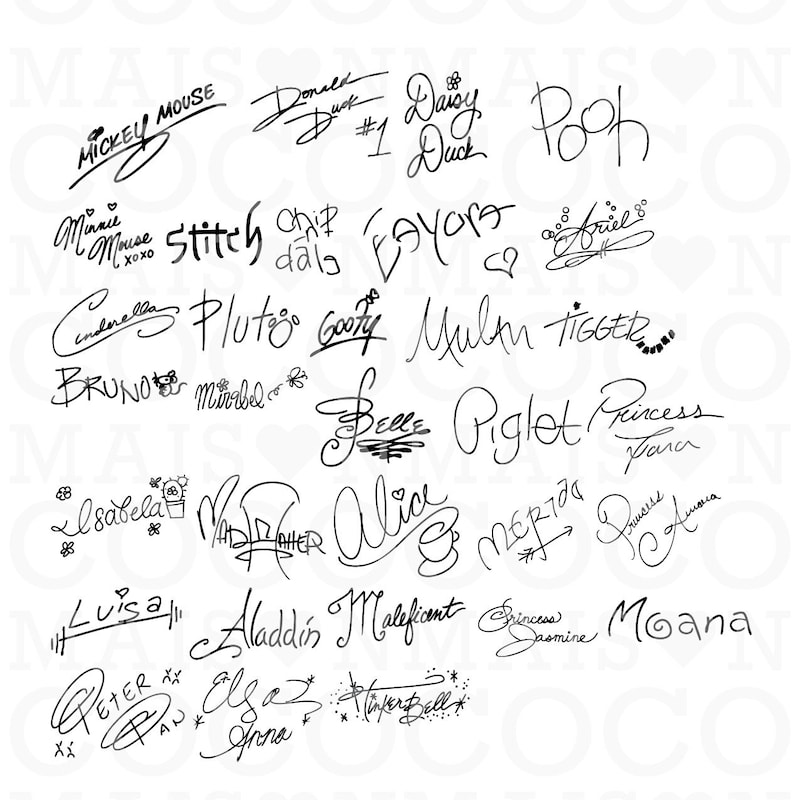 Mickey Mouse
Donald
Duck
#1
Daisy
Duck
Pooh
Minnie
Mouse
xoxo
Stitch
chip
dale
Ariel
Cinderella
Pluto
Goofy
Mulan
TIGGER
BRUNO
Mirabel
Belle
Piglet
Princess
Isabela
MAD HATTER
Alice
MERIDA
Princess
Aurora
Luisa
Aladdin
Maleficent
Princess
Jasmine
Moana
PETER
PAN
Elsa
Anna
TinkerBell
MAISON
COCO